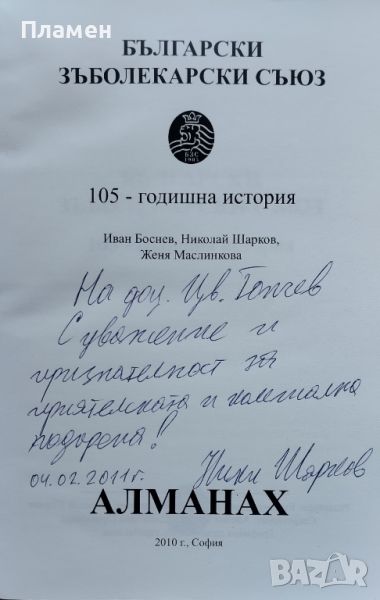 Пламен
БЪЛГАРСКИ
ЗЪБОЛЕКАРСКИ СЪЮЗ
БЗС
1905
105 - годишна история
Иван Боснев, Николай Шарков,
Женя Маслинкова
На доц. Цв. Тончев
С уважение и
признателност за
приятелската и колегиална
подкрепа!
04.02.2011г.
Ники Шарков
АЛМАНАХ
2010 г., София
BAZAR